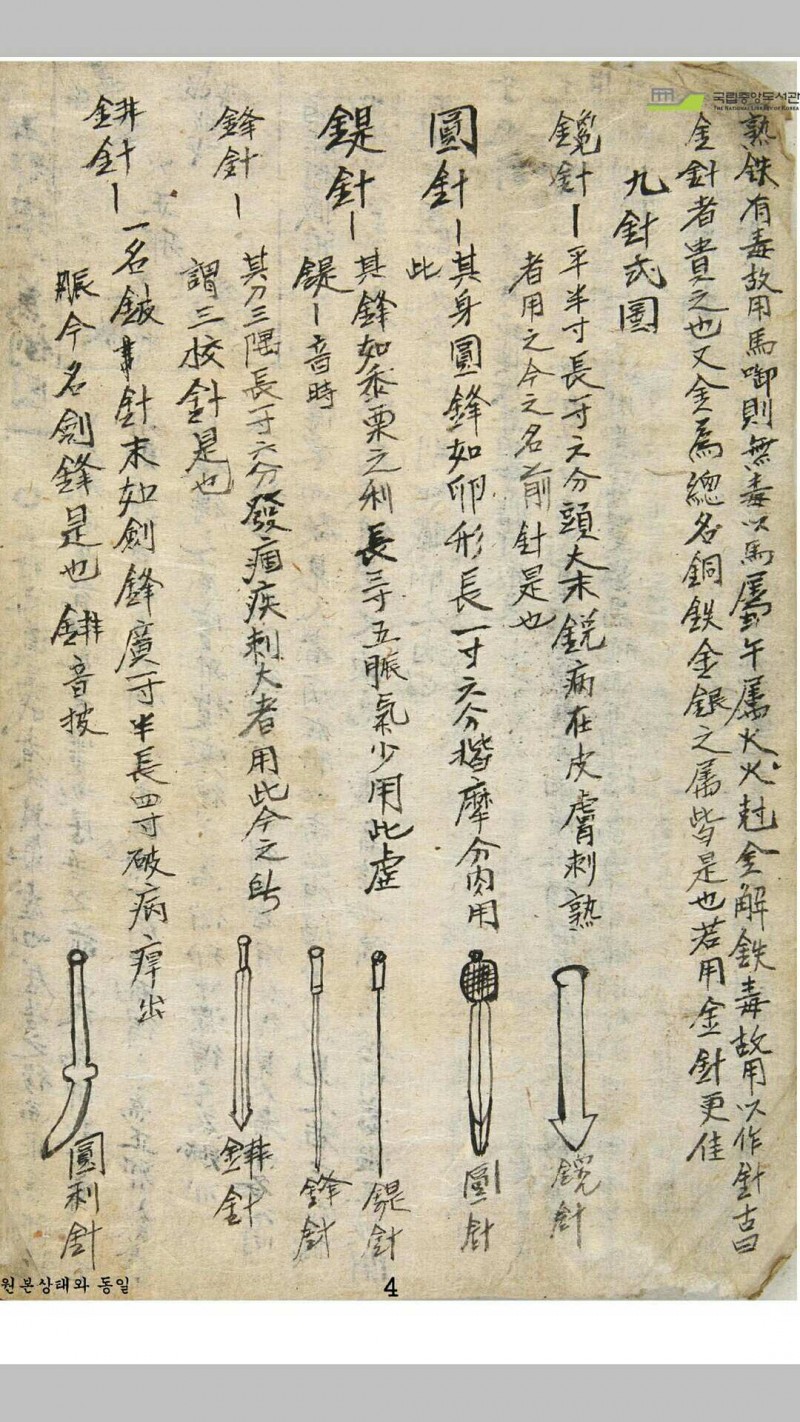 국립중앙도서관
THE NATIONAL LIBRARY OF KOREA
熟鉄有毒故用馬啣則無毒以馬屬午屬火火尅金解鉄毒故用以作針古曰
金針者貴之也又金爲總名銅鉄金銀之属皆是也若用金針更佳
九針式圖
鑱針ー平半寸長一寸六分頭大末銳病在皮膚刺熟
者用之今之名前針是也
圓針ー其身圓鋒如卵形長一寸六分揩摩分肉用
此
鍉針ー其鋒如黍粟之利長三寸五脈氣少用此虛
鍉ー音時
鋒針ー其刃三隅長一寸六分發痼疾刺大者用此今之所
謂三校針是也
鈹針ー一名鈹針末如劍鋒廣一寸半長四寸破病癉出
脈今名劍鋒是也 音披
針
圓針
鍉針
鋒針
針
圓利針
원본상태와 동일
4